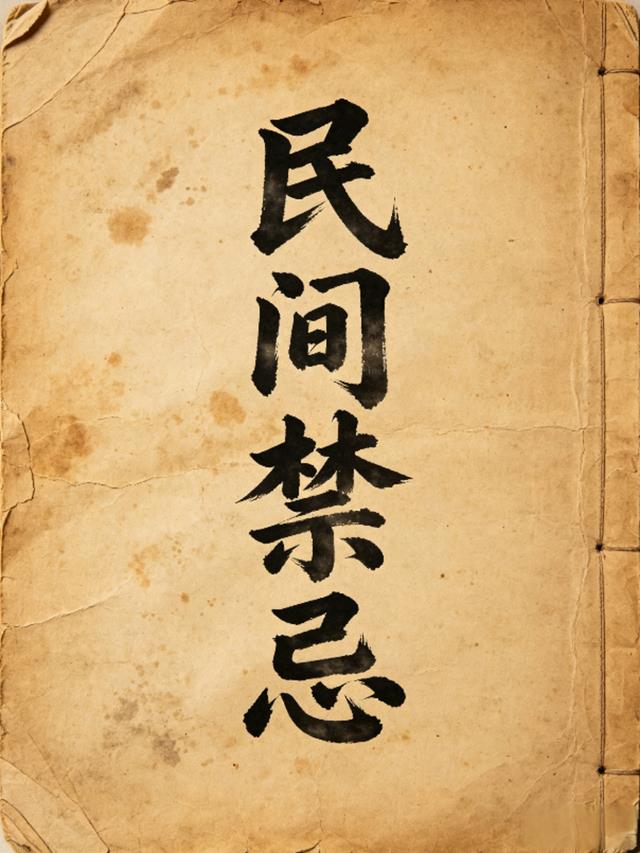 民间禁忌